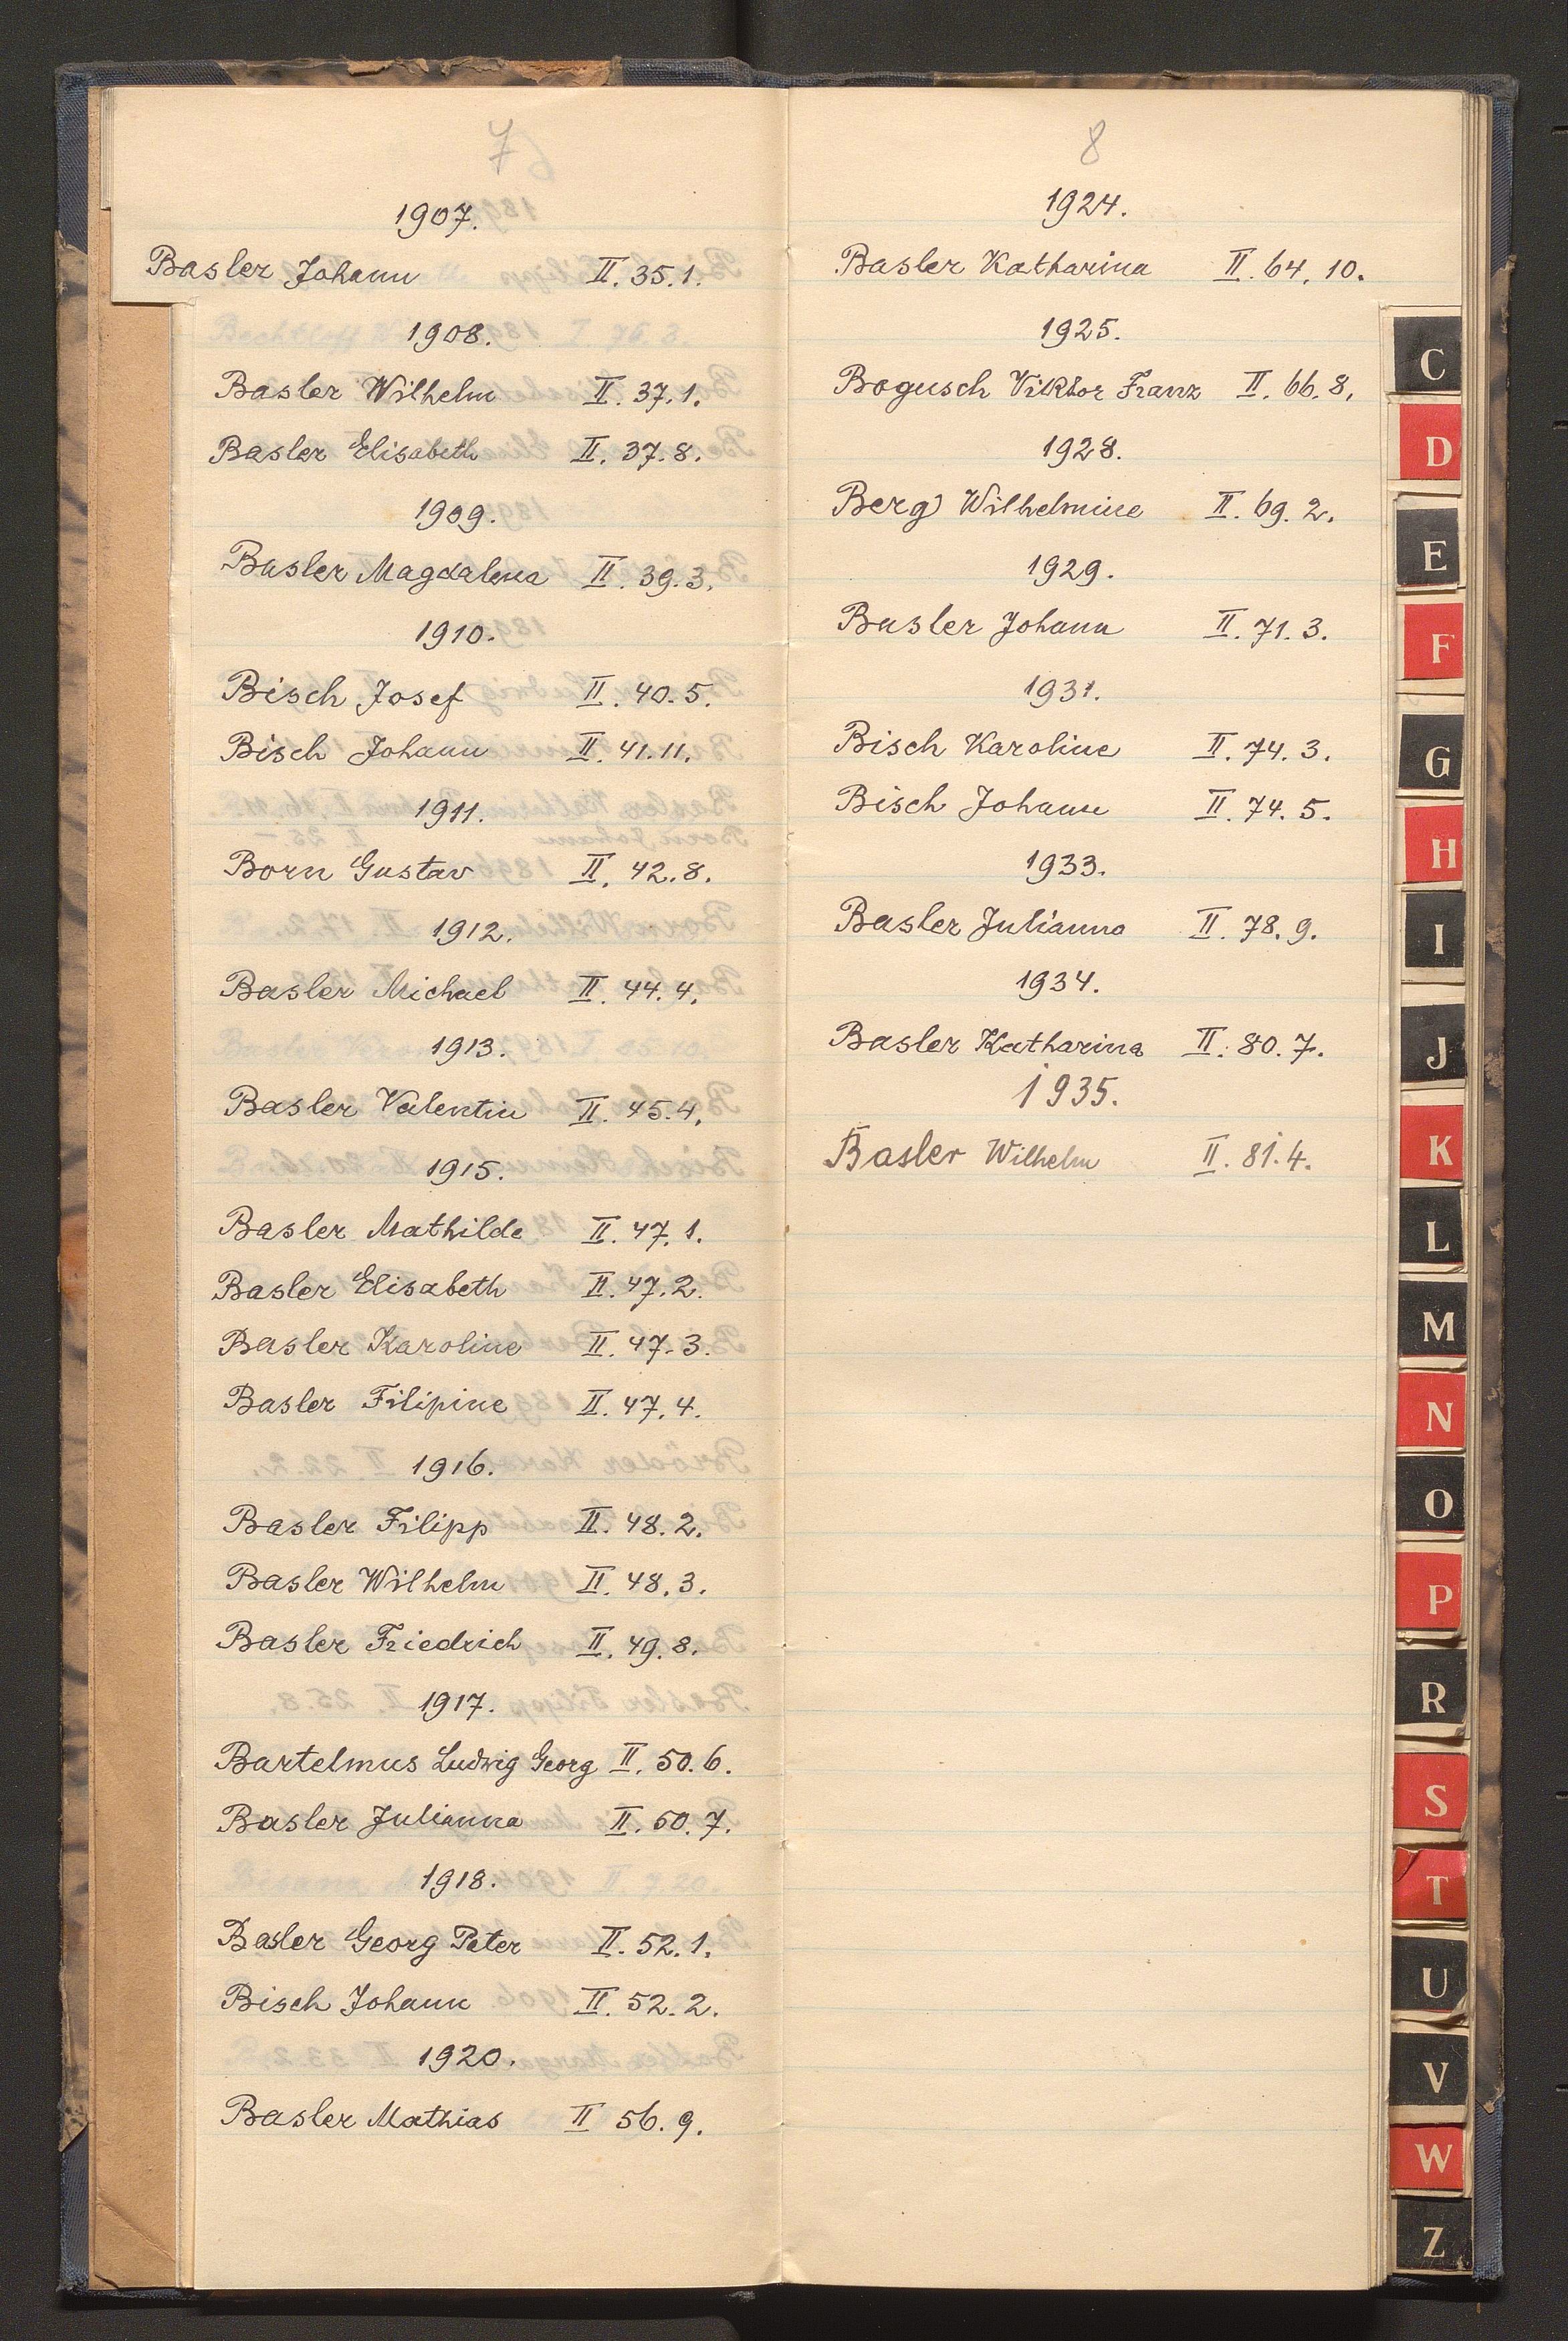 7
1907.
Basler Johann II. 35.1.
1908.
Basler Wilhelm II. 37.1.
Basler Elisabeth II. 37.8.
1909.
Basler Magdalena II. 39.3.
1910.
Bisch Josef II. 40.5.
Bisch Johann II. 41.11.
1911.
Born Gustav II. 42.8.
1912.
Basler Michael II. 44.4.
1913.
Basler Valentin II. 45.4.
1915.
Basler Mathilde II. 47.1.
Basler Elisabeth II. 47.2.
Basler Karoline II. 47.3.
Basler Filipine II. 47.4.
1916.
Basler Filipp II. 48.2.
Basler Wilhelm II. 48.3.
Basler Friedrich II. 49.8.
1917.
Bartelmus Ludwig Georg II. 50.6.
Basler Julianna II. 50.7.
1918.
Basler Georg Peter II. 52.1.
Bisch Johann II. 52.2.
1920.
Basler Mathias II 56.9.
8
1924.
Basler Katharina II. 64.10.
1925.
Bogusch Viktor Franz II. 66.8.
1928.
Berg Wilhelmine II. 69.2.
1929.
Basler Johann II. 71.3.
1931.
Bisch Karoline II. 74.3.
Bisch Johann II. 74.5.
1933.
Basler Julianna II. 78.9.
1934.
Basler Katharina II. 80.7.
1935.
Basler Wilhelm II. 81.4.
C
D
E
F
G
H
I
J
K
L
M
N
O
P
R
S
T
U
V
W
Z